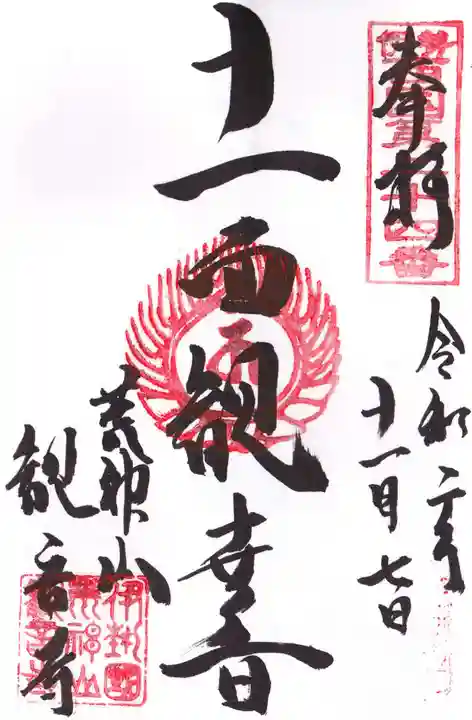 奉拝
令和二年
十一月七日
十一面観音
荒神山
観音寺